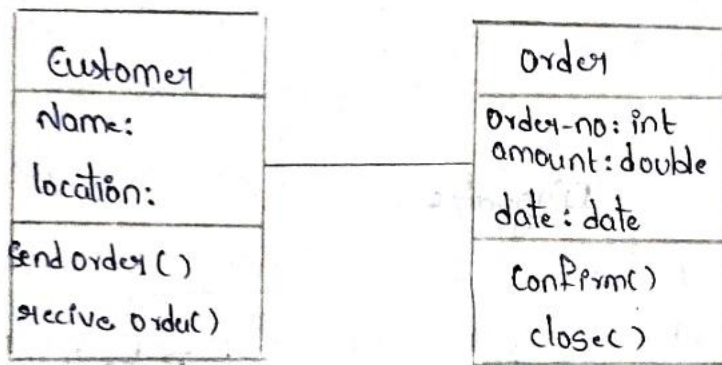 Customer
Name:
location:
send order()
recive order()
order
order-no: int
amount: double
date: date
Confirm()
close()